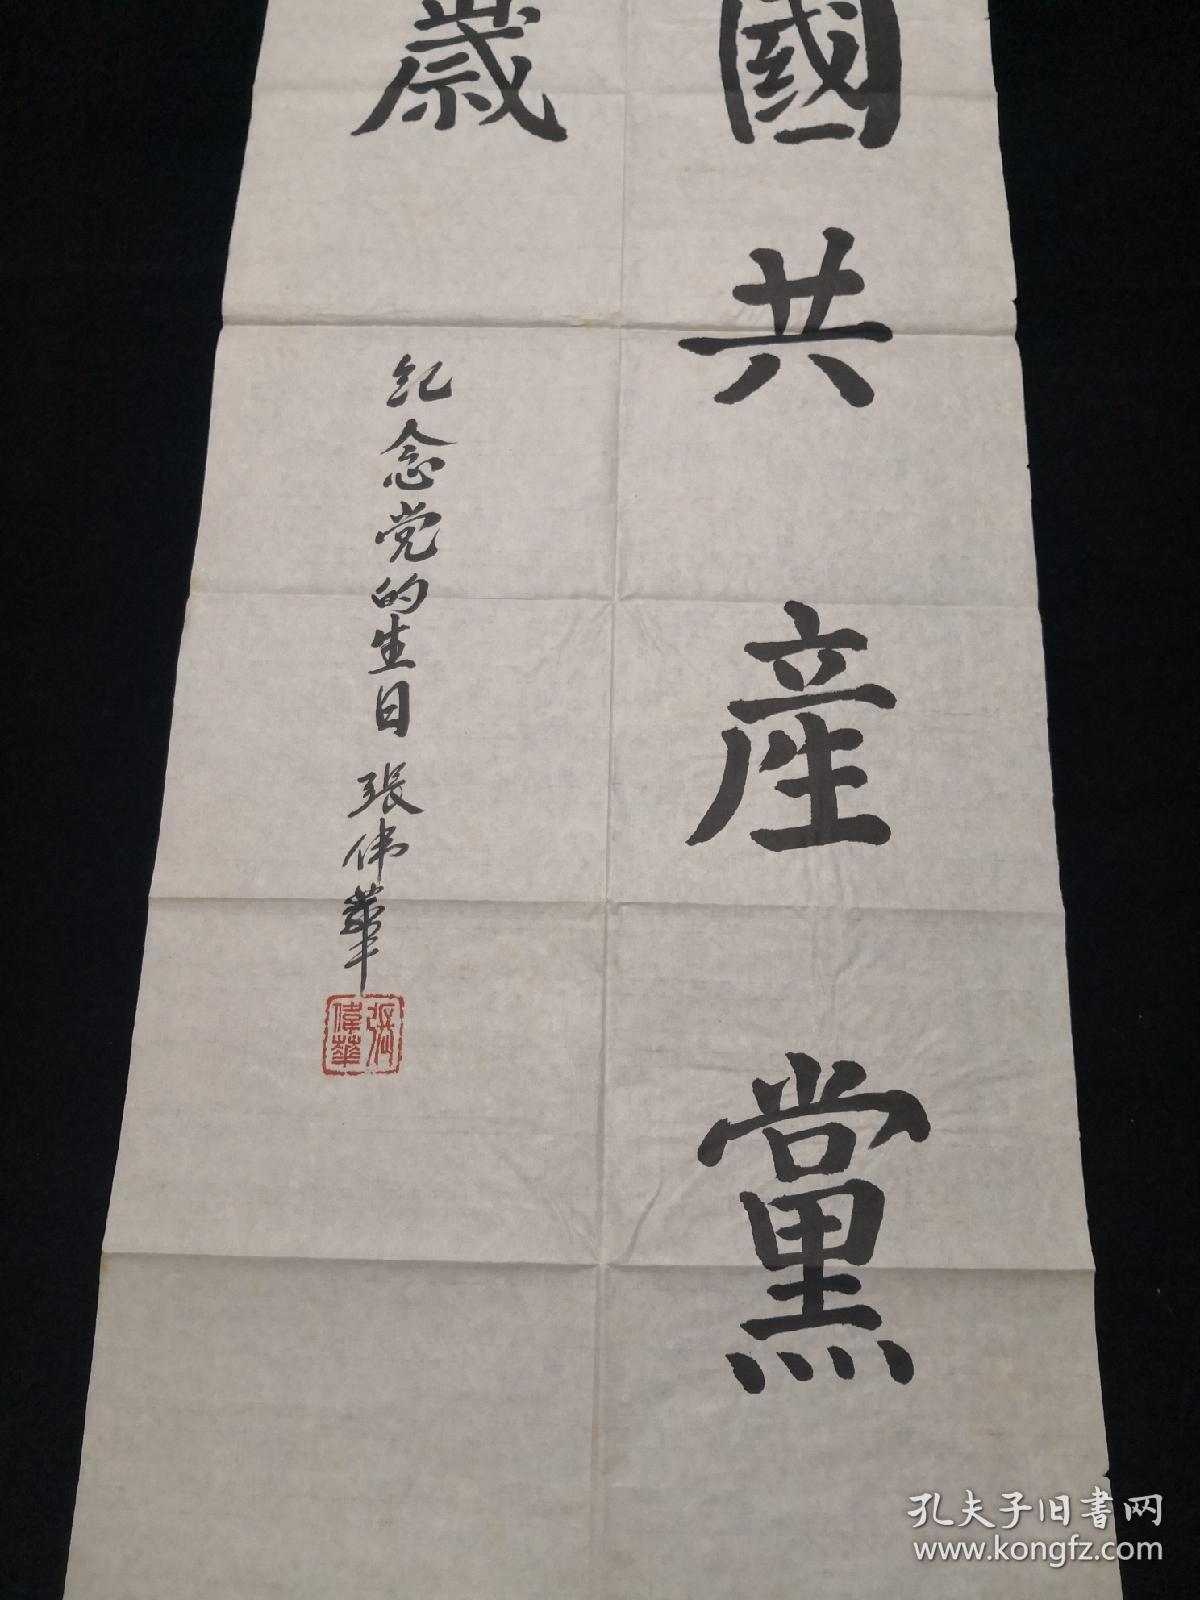 國共産黨
歲
纪念党的生日 張伟華
張偉華
孔夫子旧书网
www.kongfz.com